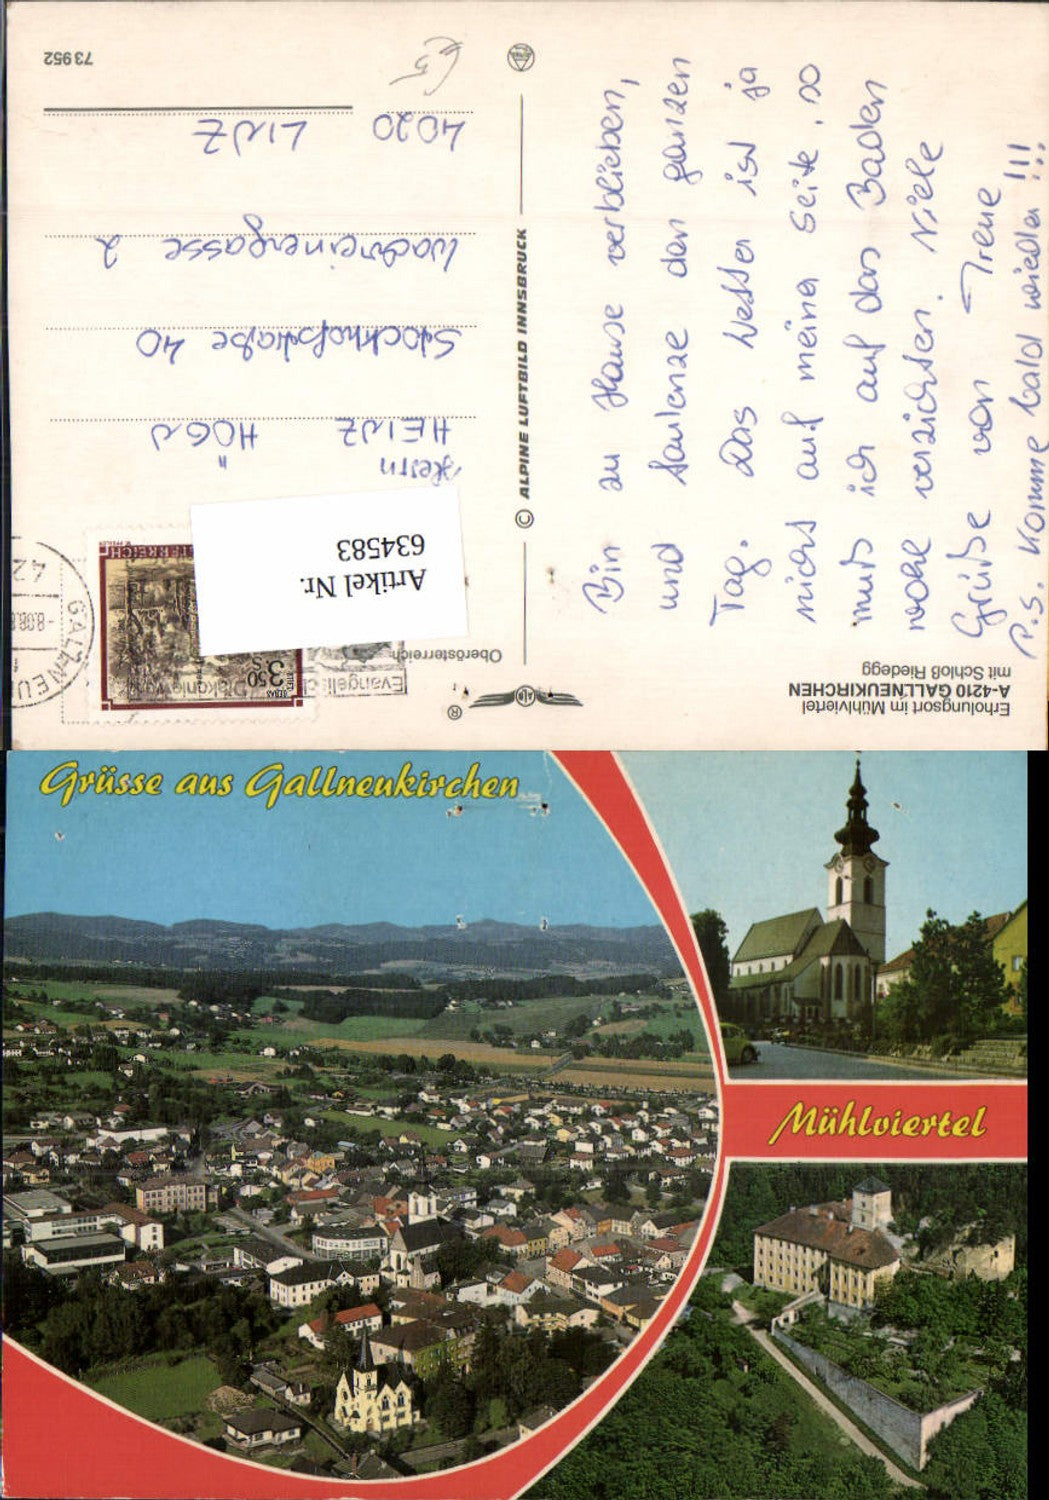 Erholungsort im Mühlviertel
A-4210 GALLNEUKIRCHEN
mit Schloß Riedegg
Oberösterreich
®
Bin zu Hause verblieben,
und faulenze den ganzen
Tag. Das Wetter ist ja
nicht auf meiner Seite, so
muß ich auf das Baden
wohl verzichten. Viele
Grüße von Irene
P.S. Komme bald wieder !!!
© ALPINE LUFTBILD INNSBRUCK
Evangelisches
Diakoniewerk
GALLNEU
42
-8.08.8
ÖSTERREICH
350
S
Artikel Nr.
634583
Herrn
HEINZ HÖGN
Stockhofstraße 40
Wachreinergasse 2
4020 LINZ
€5
73952
Grüsse aus Gallneukirchen
Mühlviertel